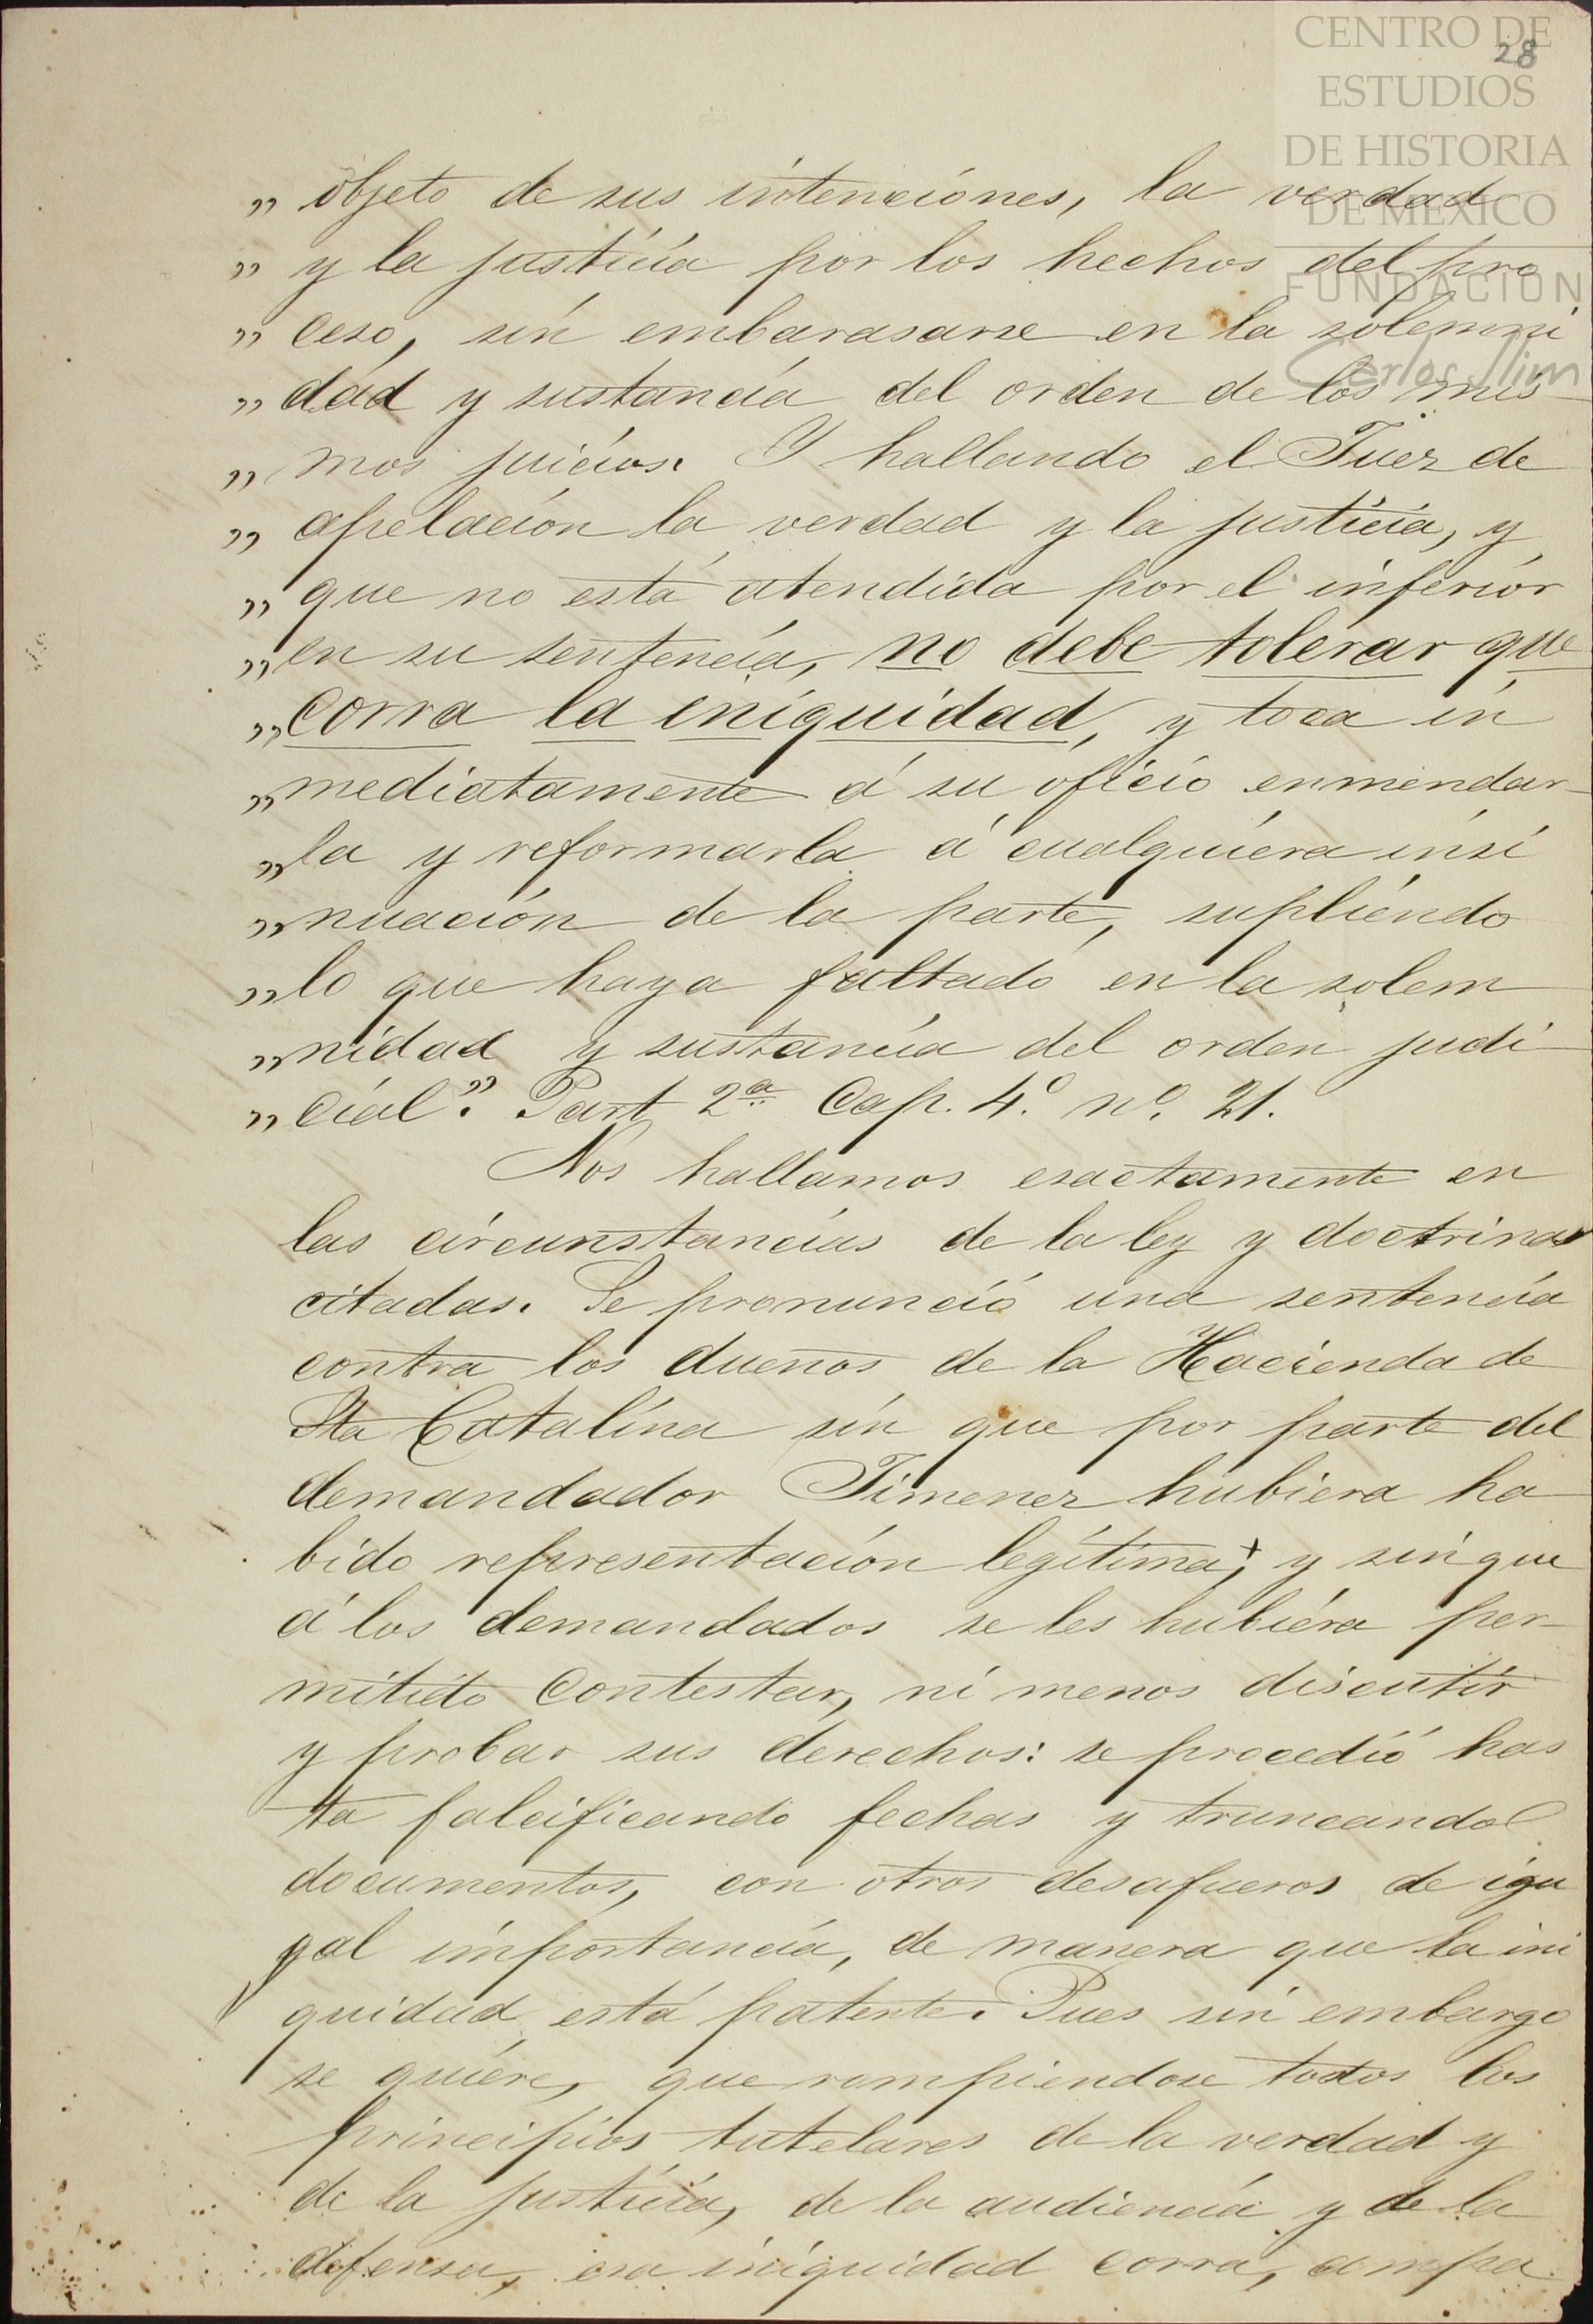 CENTRO DE
ESTUDIOS
DE HISTORIA
DE MEXICO
FUNDACION
Carlos Slim
28
„ objeto de sus intenciones, la verdad
„ y la justicia por los hechos del pro
„ ceso, sin embarasarse en la solemni
„ dad y sustancia del orden de los mis
„ mos juicios. Y hallando el Juez de
„ apelación la verdad y la justicia, y
„ que no está atendida por el inferior
„ en su sentencia, no debe tolerar que
„ corra la iniquidad, y toca in
„ mediatamente á su oficio enmendar-
„ la y reformarla á cualquiera insi
„ nuación de la parte, supliendo
„ lo que haya faltado en la solem
„ nidad y sustancia del orden judi
„ cial". Part 2ª Cap. 4º nº. 21.
Nos hallamos esactamente en
las circunstancias de la ley y doctrinas
citadas. Se pronunció una sentencia
contra los duenos de la Hacienda de
Sta Catalina sin que por parte del
demandador Jimenez hubiera ha
bido representación legítima+; y sin que
á los demandados se les hubiera per-
mitido contestar, ni menos discutir
y probar sus derechos: se procedió has
ta falcificando fechas y truncando
documentos, con otros desafueros de igu
gal importancia, de manera que la ini
quidad está patente. Pues sin embargo
se quiere, que rompiendose todos los
principios tutelares de la verdad y
de la justicia, de la audiencia y de la
defensa, esa iniquidad corra, ampa